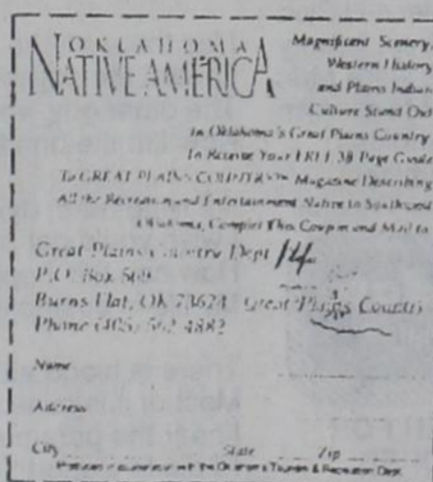 OKLAHOMA
NATIVE AMERICA
Magnificent Scenery,
Western History
and Plains Indian
Culture Stand Out
In Oklahoma's Great Plains Country
To Receive Your FREE 38 Page Guide
To GREAT PLAINS COUNTRY™ Magazine Describing
All the Recreation and Entertainment Native to Southwest
Oklahoma, Complet This Coupon and Mail to
Great Plains Country Dept 14
P.O. Box
Burns Flat, OK 73624
Great Plains Country
Phone (405) 562-4882
Name
Address
City State Zip
with the Oklahoma Tourism & Recreation Dept.